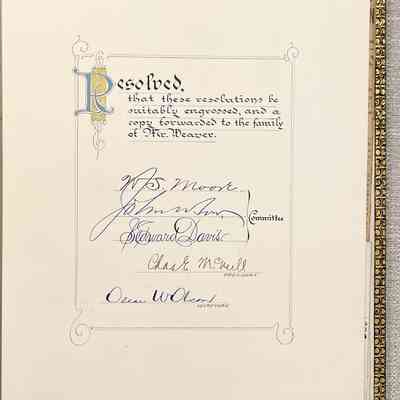 Resolved,
that these resolutions be
suitably engrossed, and a
copy forwarded to the family
of Mr. Weaver.
W. S. Moore
Committee
J Edward Davis
Chas E. McNeill
PRESIDENT
Oscar W Olson
SECRETARY